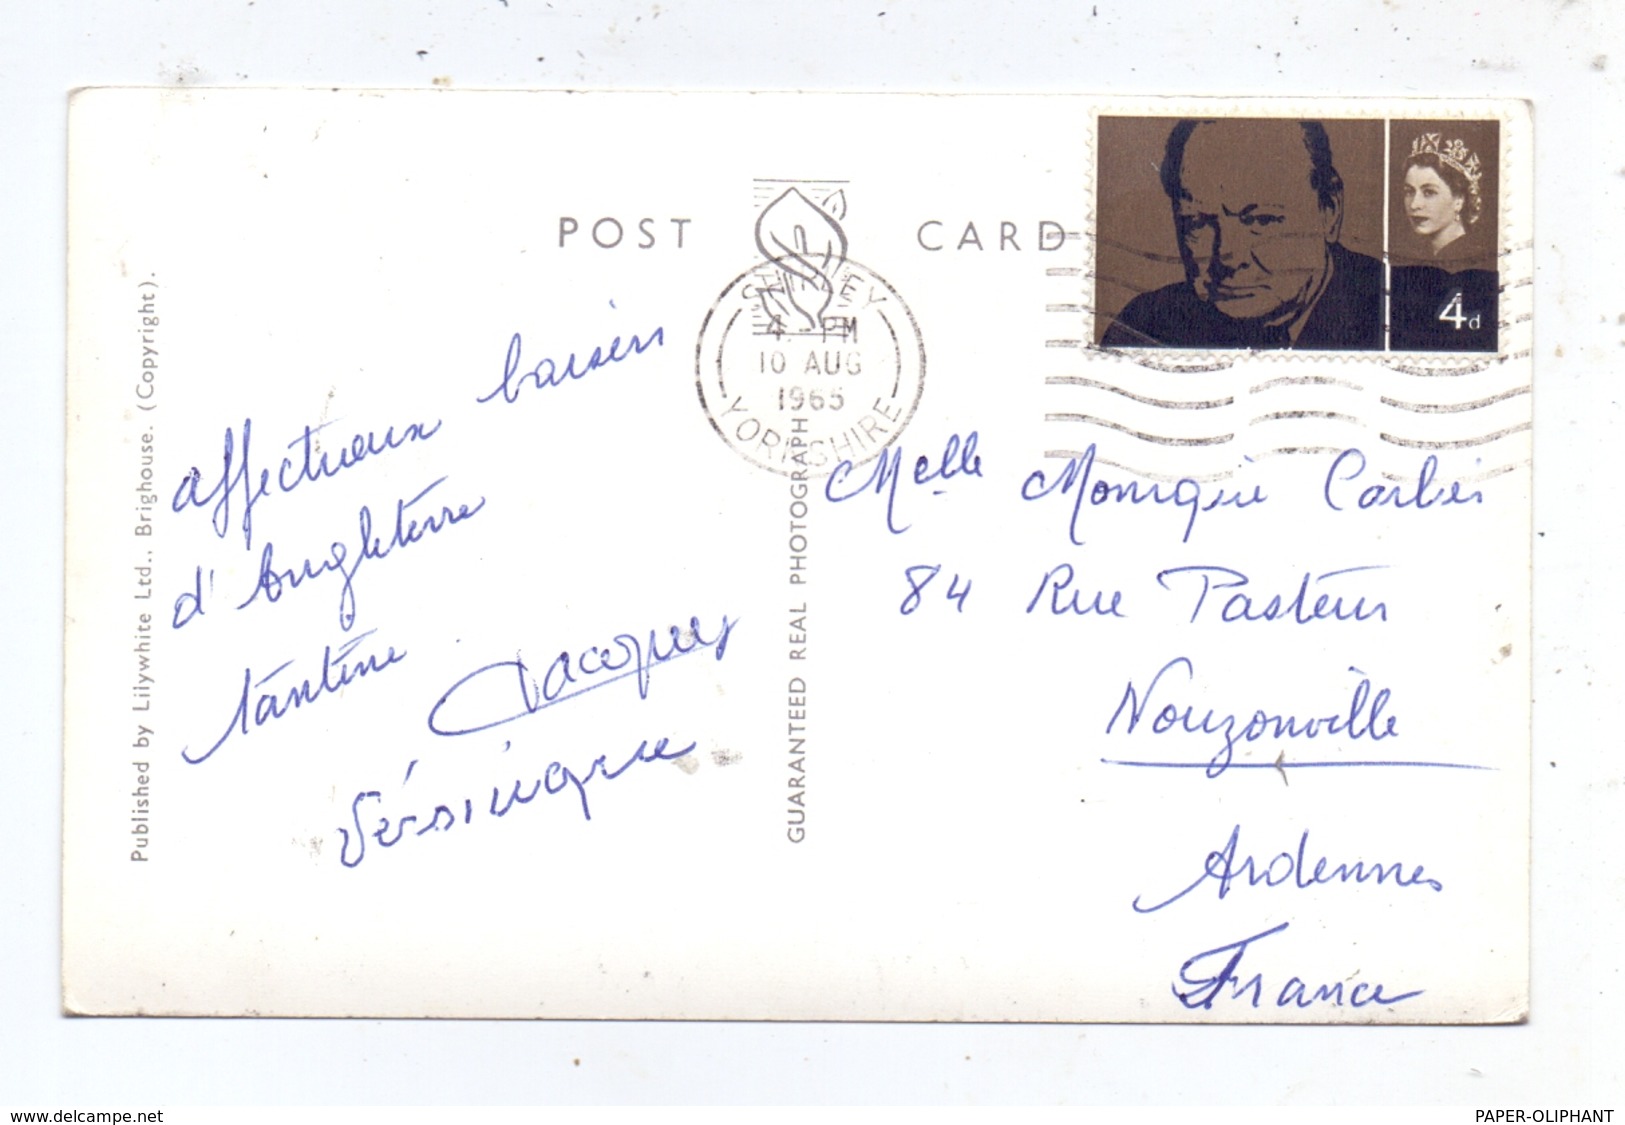 POST CARD
SHIPLEY
4 - PM
10 AUG
1965
YORKSHIRE
4d
Published by Lilywhite Ltd., Brighouse. (Copyright).
GUARANTEED REAL PHOTOGRAPH
affectueux baisers
d'Angleterre
tantine Jacques
Véronique
Melle Monique Corbier
84 Rue Pasteur
Nouzonville
Ardennes
France
www.delcampe.net
PAPER-OLIPHANT